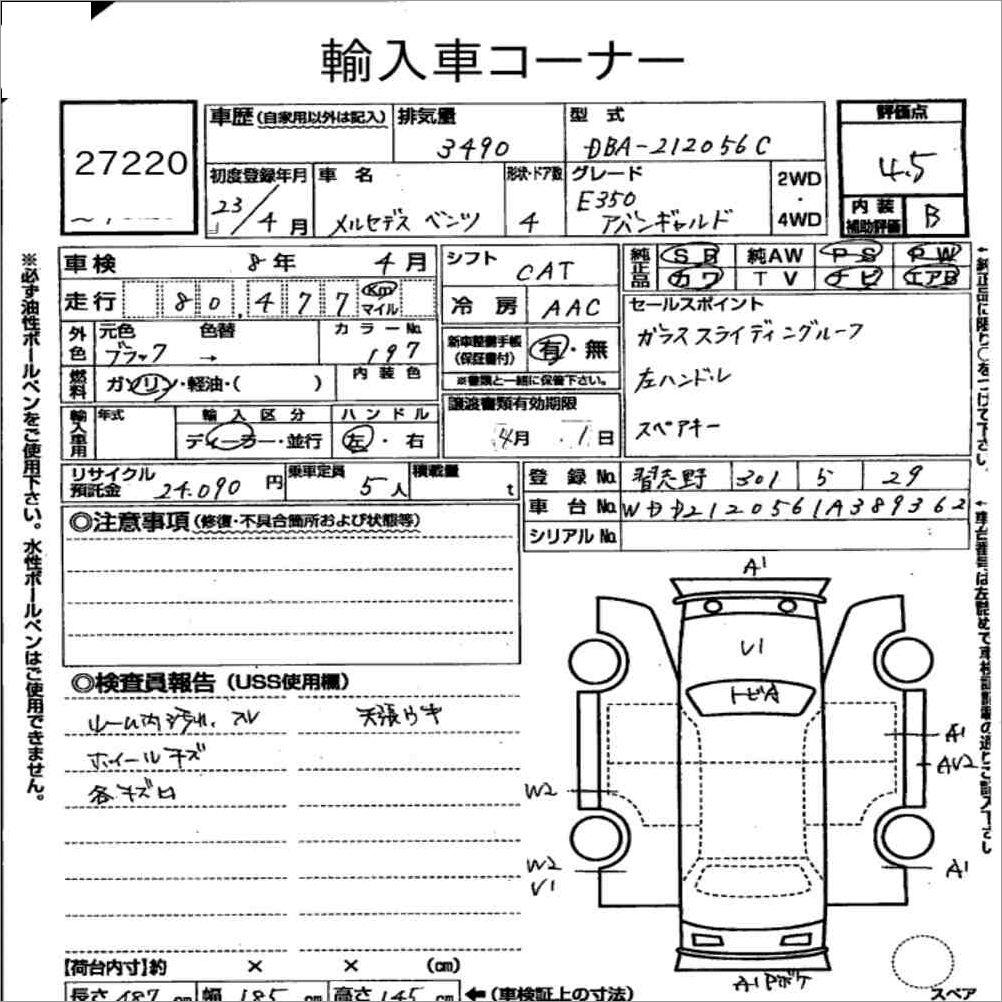 輸入車コーナー
27220
車歴 (自家用以外は記入)
排気量
3490
型式
DBA-212056C
評価点
4.5
初度登録年月
23/4月
車名
メルセデス ベンツ
形状・ドア数
4
グレード
E350
アバンギャルド
2WD
・
4WD
内装
補助評価
B
車検 8年 4月
走行 80,477 Km マイル
外色
元色 ブラック
色替 →
カラーNo. 197
燃料 ガソリン・軽油・( )
内装色
輸入車用
年式
輸入区分
ディーラー・並行
ハンドル
左・右
シフト CAT
冷房 AAC
新車整備手帳
(保証書付)
有・無
※書類と一緒に保管下さい。
譲渡書類有効期限
4月 1日
純正品
SR 純AW PS PW
カワ TV ナビ エアB
セールスポイント
ガラススライディングルーフ
左ハンドル
スペアキー
リサイクル
預託金 24,090円
乗車定員 5人
積載量 t
登録No. 習志野 301 5 29
車台No. WDD2120561A389362
シリアルNo.
◎注意事項(修復・不具合箇所および状態等)
◎検査員報告(USS使用欄)
ルーム内汚れ、スレ 天張ウキ
ホイールキズ
各キズ凹
A1
V1
トビA
A1
AV2
W2
W2
V1
A1
A1Pボケ
スペア
【荷台内寸】約 × × (cm)
長さ 487 cm 幅 185 cm 高さ 145 cm ←(車検証上の寸法)
※必ず油性ボールペンをご使用下さい。水性ボールペンはご使用できません。
↑純正品に限り○をつけて下さい。